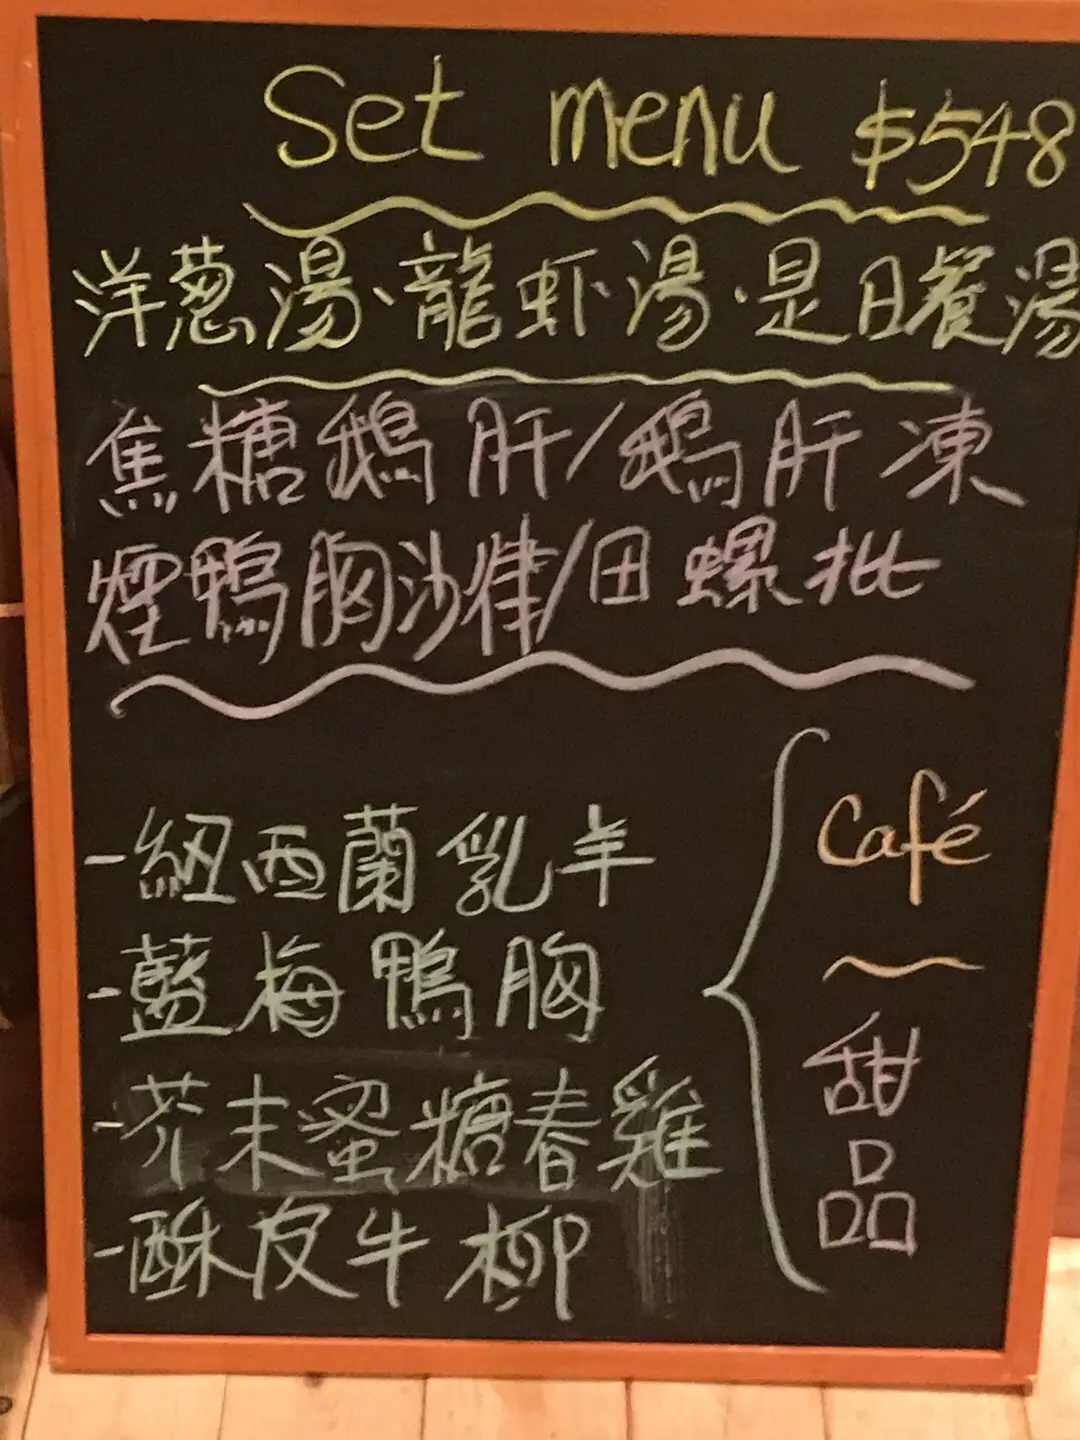 Set menu $548
洋葱湯、龍虾湯、是日餐湯
焦糖鵝肝/鵝肝凍
煙鴨胸沙律/田螺批
-紐西蘭乳羊
-藍梅鴨胸
-芥末蜜糖春雞
-酥皮牛柳
Café
甜
品